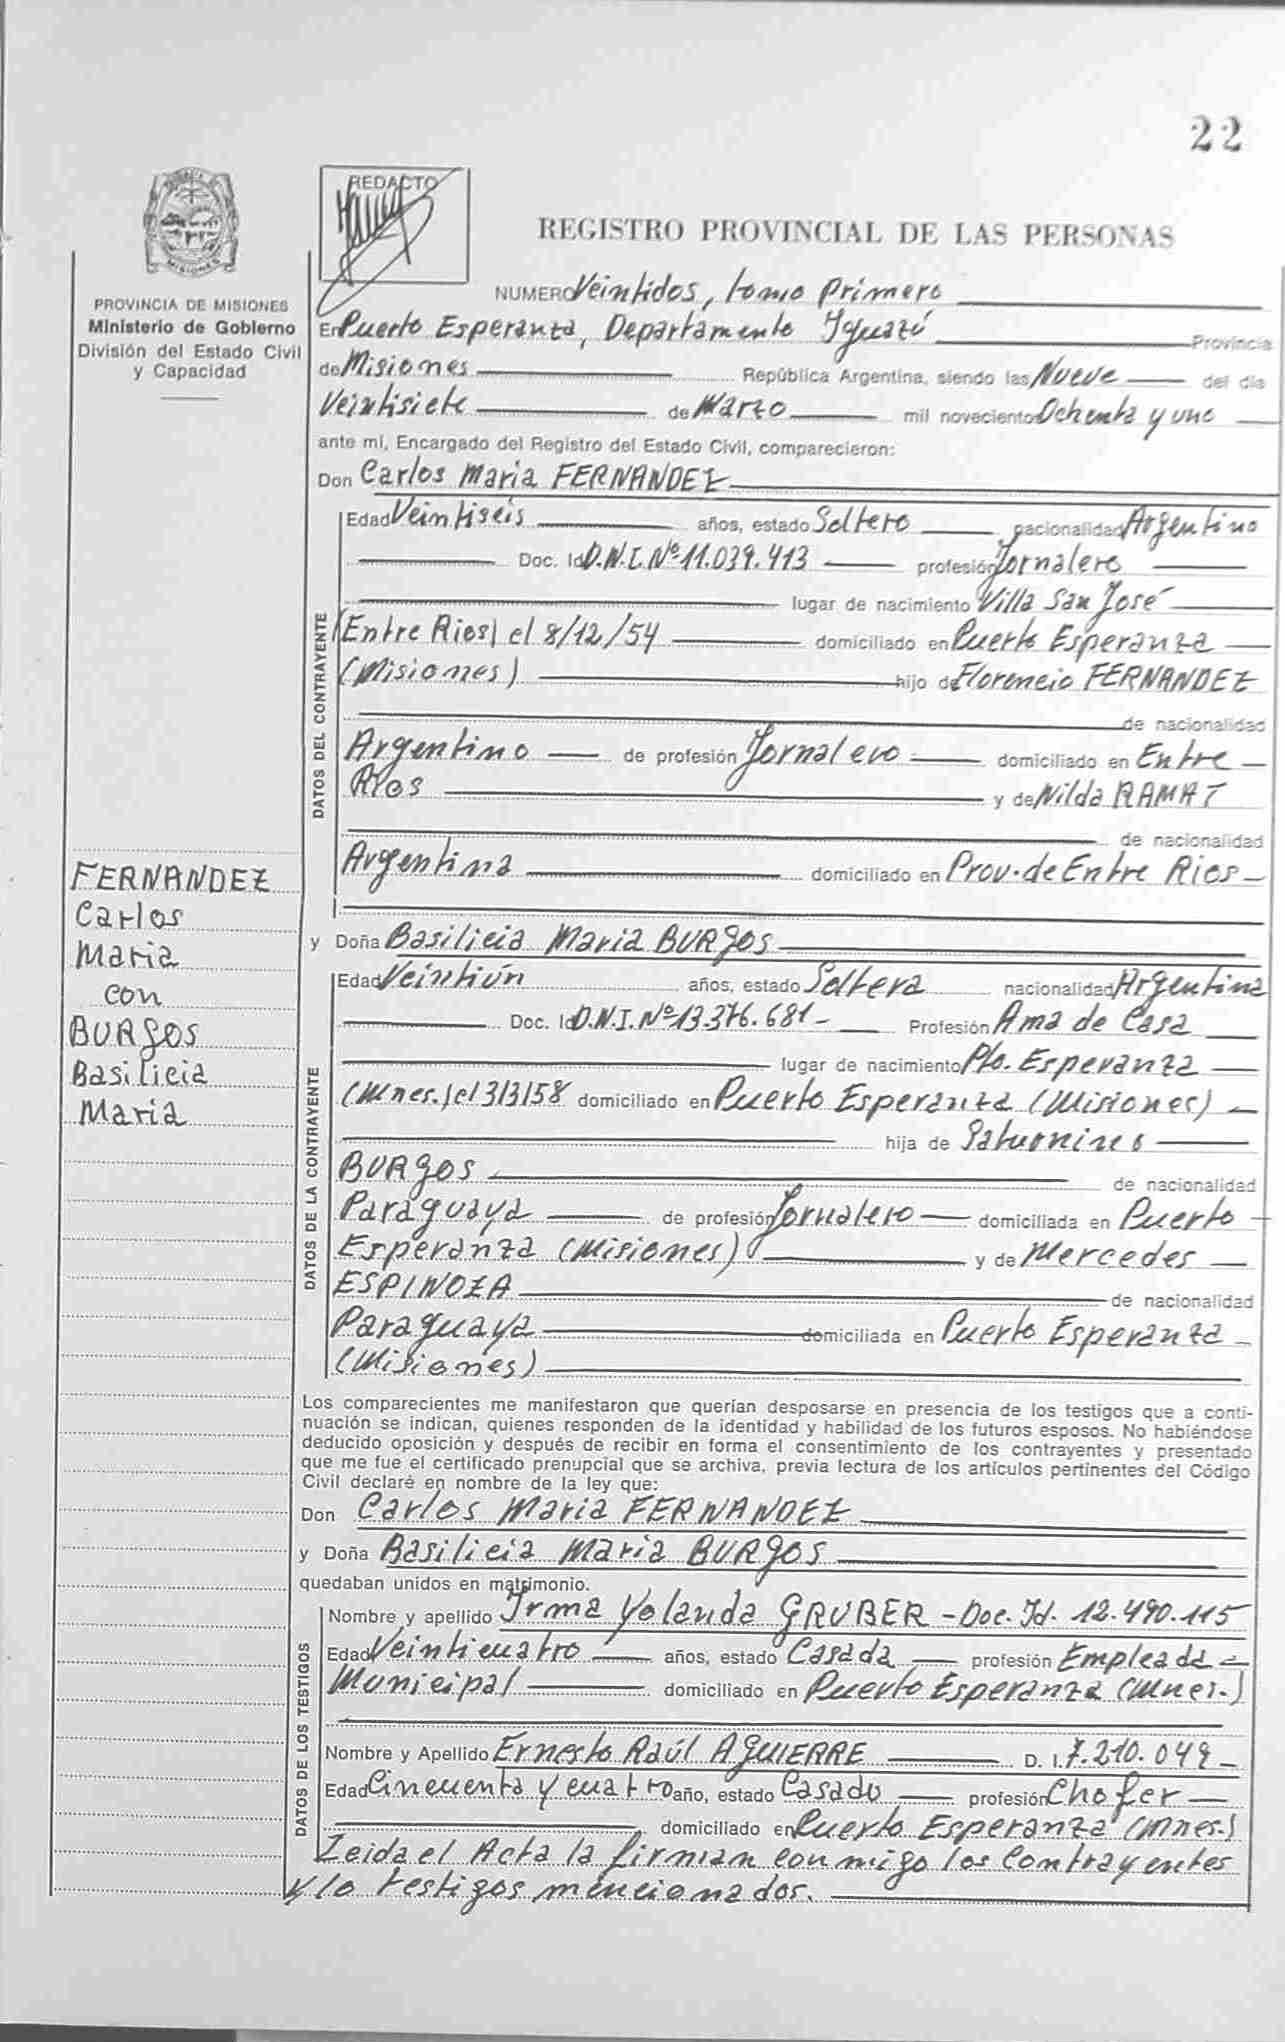 22
REDACTO
REGISTRO PROVINCIAL DE LAS PERSONAS
MISIONES
PROVINCIA DE MISIONES
Ministerio de Gobierno
División del Estado Civil
y Capacidad
NUMERO Veintidos, tomo primero
En Puerto Esperanza, Departamento Iguazú Provincia
de Misiones República Argentina, siendo las Nueve del día
Veintisiete de Marzo mil novecientos Ochenta y uno
ante mí, Encargado del Registro del Estado Civil, comparecieron:
Don Carlos Maria FERNANDEZ
DATOS DEL CONTRAYENTE
Edad Veintiseis años, estado Soltero nacionalidad Argentino
Doc. Id. D.N.I. Nº 11.039.413 profesión Jornalero
lugar de nacimiento Villa San José
(Entre Rios) el 8/12/54 domiciliado en Puerto Esperanza
(Misiones) hijo de Florencio FERNANDEZ
de nacionalidad
Argentino de profesión Jornalero domiciliado en Entre
Rios y de Nilda RAMAT
de nacionalidad
Argentina domiciliado en Prov. de Entre Rios
FERNANDEZ
Carlos
Maria
con
BURGOS
Basilicia
Maria
y Doña Basilicia Maria BURGOS
DATOS DE LA CONTRAYENTE
Edad Veintiún años, estado Soltera nacionalidad Argentina
Doc. Id. D.N.I. Nº 13.376.681 Profesión Ama de Casa
lugar de nacimiento Pto. Esperanza
(Mnes.) el 3/3/58 domiciliado en Puerto Esperanza (Misiones)
hija de Saturnino
BURGOS de nacionalidad
Paraguaya de profesión Jornalero domiciliada en Puerto
Esperanza (Misiones) y de Mercedes
ESPINOZA de nacionalidad
Paraguaya domiciliada en Puerto Esperanza
(Misiones)
Los comparecientes me manifestaron que querían desposarse en presencia de los testigos que a conti-
nuación se indican, quienes responden de la identidad y habilidad de los futuros esposos. No habiéndose
deducido oposición y después de recibir en forma el consentimiento de los contrayentes y presentado
que me fue el certificado prenupcial que se archiva, previa lectura de los artículos pertinentes del Código
Civil declaré en nombre de la ley que:
Don Carlos Maria FERNANDEZ
y Doña Basilicia Maria BURGOS
quedaban unidos en matrimonio.
DATOS DE LOS TESTIGOS
Nombre y apellido Irma Yolanda GRUBER - Doc. Id. 12.490.115
Edad Veinticuatro años, estado Casada profesión Empleada
Municipal domiciliado en Puerto Esperanza (Mnes.)
Nombre y Apellido Ernesto Raúl AGUIERRE D. I. 7.210.049
Edad Cincuenta y cuatro año, estado Casado profesión Chofer
domiciliado en Puerto Esperanza (Mnes.)
Leida el Acta la firman conmigo los Contrayentes
y lo testigos mencionados.